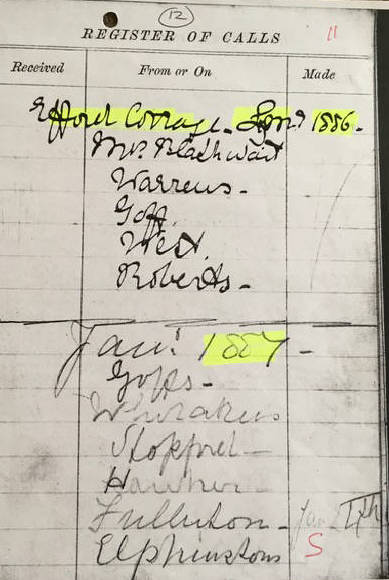 12
11
REGISTER OF CALLS
Received From or On Made
Efford Cottage - 1886 -
Mrs. Blathwait
Warrens -
Goff.
West.
Roberts -
Jan: 1887 -
Goffs -
Whitakers
Stopford -
Hawker -
Fullerton - Jan
Elphinstons S